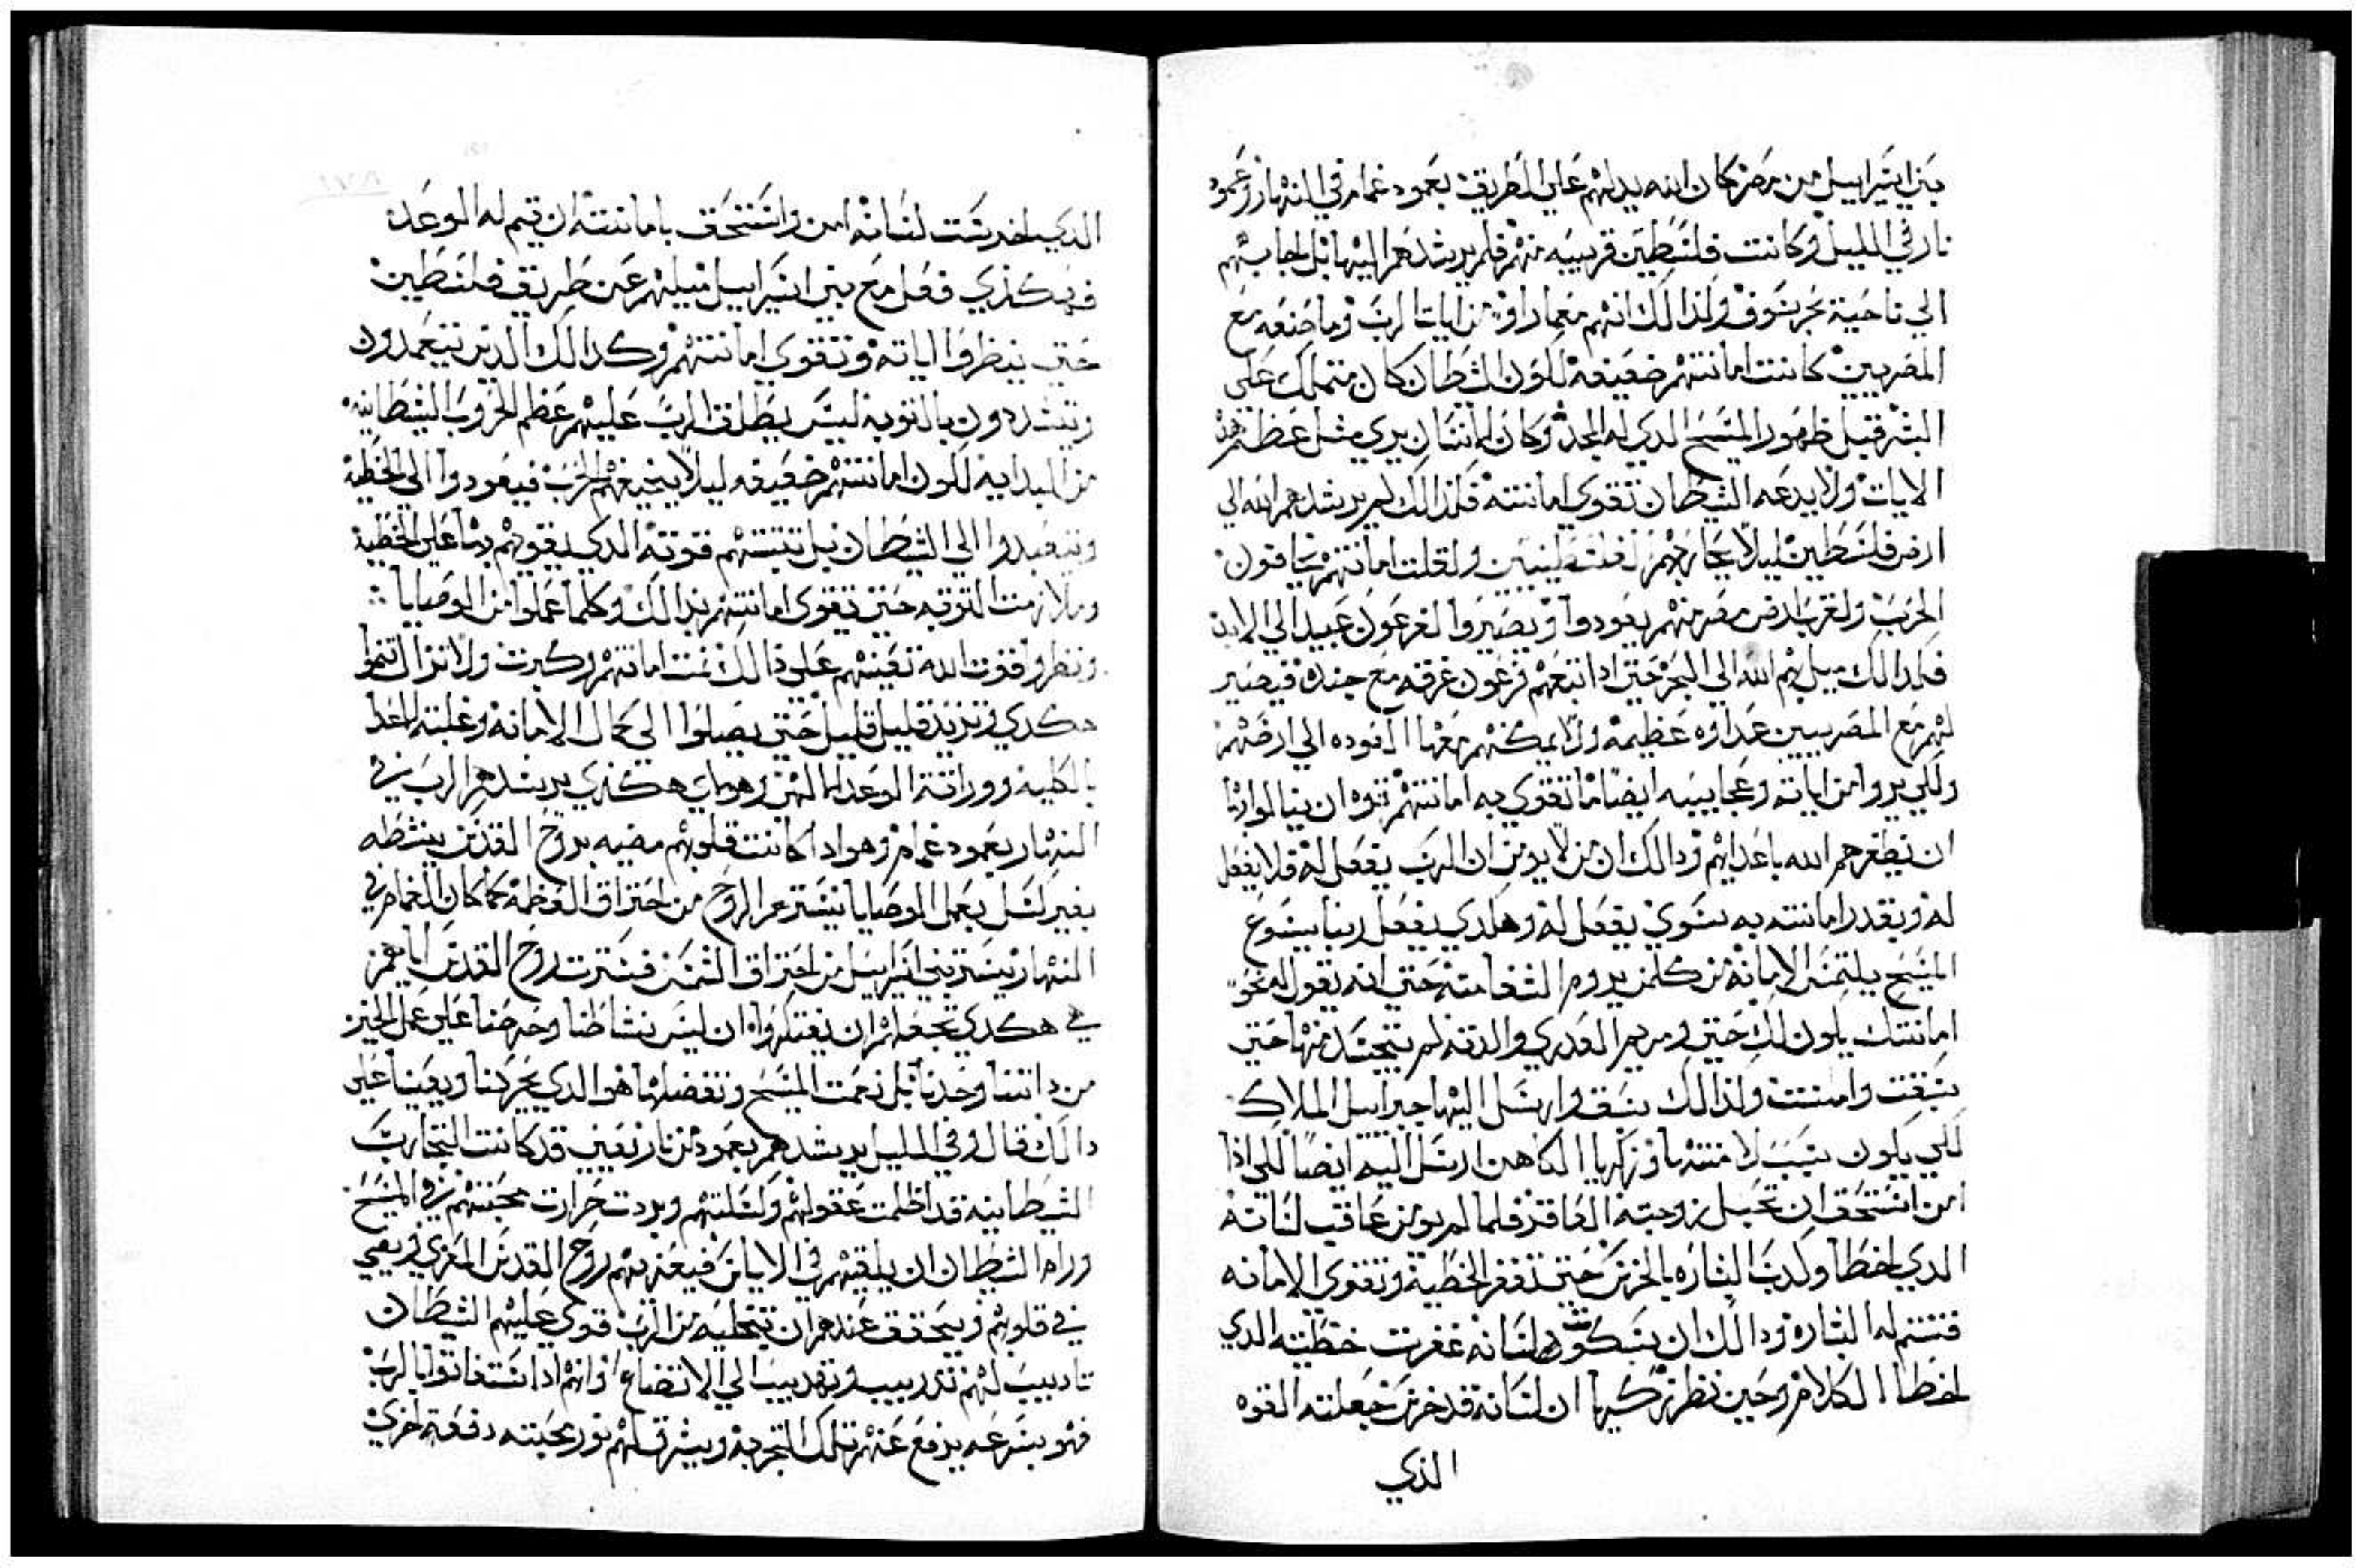 بني اسراييل من مصر كان الله يدلهم علي الطريق بعمود غمام في النهار وعمود
نار في الليل وكانت فلسطين قريبه منهم فلم يرشدهم اليها بل اجابهم
الي ناحية بحر سوف ولذالك انهم معما راوا من ايات الرب وما صنعه مع
المصريين كانت امانتهم ضعيفه لكون الشطان كان متملك علي
البشر قبل ظهور المسيح الدي له المجد وكان الانسان يري مثل عظم هذه
الايات ولا يدعه الشطان تقوي امانته فلذالك لم يرشدهم الله الي
ارض فلسطين ليلا يحاربهم الفلسطينيين ولقلت امانتهم يخافون
الحرب ولقرب ارض مصر منهم يعودوا ويصيروا لفرعون عبيد الي الابد
فلدالك ميل بهم الله الي البحر حتي ادا تبعهم فرعون غرقه مع جنده فيصير
لهم مع المصريين عداوه عظيمه ولا يمكنهم معها العوده الي ارضهم
ولكي يروا من اياته وعجايبه ايضا ما تقوي به امانتهم ان ينالوا
ان يظفرهم الله باعدايهم ودالك ان من لا يومن ان الرب يفعل له فلا يفعل
له وبقدر امانته به سوي يفعل له وهكدي يفعل ربنا يسوع
المسيح يلتمس الامانة من كلمن يروم الشفا منه حتي انه يقول له نحو
امانتك يكون لك حتي ومريم العدري والدته لم يتجسد منها حتي
سبقت وامنت ولذالك سبق وارسل اليها جبراييل الملاك
لكي يكون سبب لامنتها وزكريا الكاهن ارسل اليه ايضا لكي اذا
امن استحق ان تحبل زوجته العاقر فلما لم يومن عاقب لسانه
الدي اخطا وكدب البشاره بالخرس حتي تغفر الخطية وتقوي الامانه
فتتم له البشاره ودالك ان بسكوت لسانه غفرت خطيته الدي
اخطا الكلام وحين نظر زكريا ان لسانه قد خرس جعلته القوه
الذي
الدي اخرست لسانه امن واستحق بامانته ان يتم له الوعد
فهكذي فعل مع بني اسراييل ميلهم عن طريق فلسطين
حتي ينظروا اياته وتقوي امانتهم وكدالك الدين يتعمدون
ويتشددون بالتوبه ليس يطلق الرب عليهم عظم الحروب الشطانيه
من البدايه لكون امانتهم ضعيفه ليلا يخيفهم الحرب فيعودوا الي الخطية
ويتعبدوا الي الشطان بل تثبتهم قوته الدي يقويهم علي الخطية
وملازمت التوبه حتي تقوي امانتهم بدالك وكلما عملوا من الوصايا
ونظروا قوت الله تعينهم علي ذالك نمت امانتهم وكبرت ولا تزال تنموا
هكدي وتزيد قليل قليل حتي يصلوا الي كمال الامانه وغلبة الاعدا
بالكليه ووراثة الوعد وهوداي هكذي يرشدهم الرب في
النهار بعمود غمام وهو ادا كانت قلوبهم مضيه بروح القدس ينشطه
بغير كسل بعمل الوصايا يسترهم الروح من احتراق العظمة كما كان الغمام في
النهار يستر بني اسراييل من احتراق الشمس فسترت روح القدس اياهم
هي هكدي تجعلهم ان يفتكروا ان ليس نشاطنا وحرصنا علي عمل الخير
من داتنا وحدنا بل نعمت المسيح وتفضلها هوا الدي يحركنا ويعينا علي
دالك قال وفي الليل يرشدهم بعمود من نار يعني قد كانت التجارب
الشطانيه قد اظلمت عقولهم وكسلتهم وبردت حرارت محبتهم في المسيح
ورام الشطان ان يلقيهم في الاياس فيعزيهم روح القدس المعزي ويضي
في قلوبهم ويتحقق عندهم ان بتخليه من الرب قوي عليهم الشطان
تاديب لهم تدريب وتهديب الي الاتضاع وانهم ادا استغاتوا بالرب
فهو بسرعه يرفع عنهم تلك التجربه ويشرق لهم نور محبته دفعة اخري